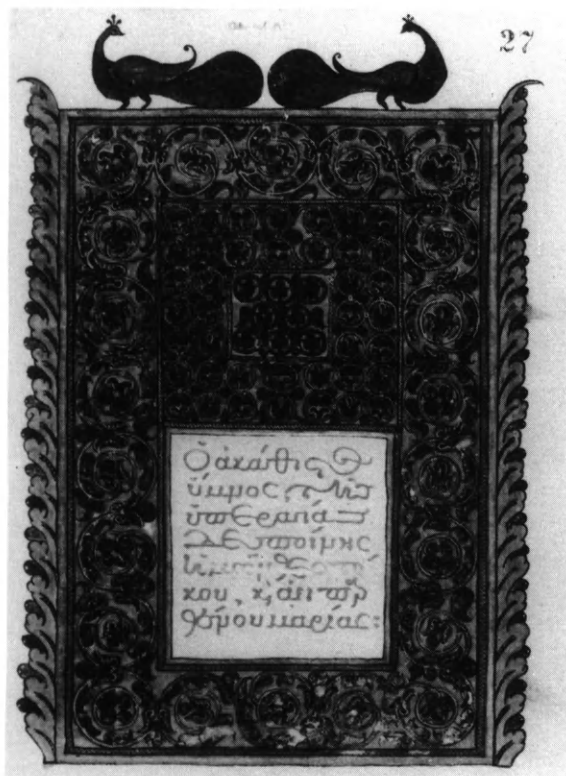 27
Ὁ ἀκάθιστος
ὕμνος τῆς
ὑπεραγίας
δεσποίνης
ἡμῶν Θεοτό
κου, κ̀ ἀειπαρ
θένου μαρίας: